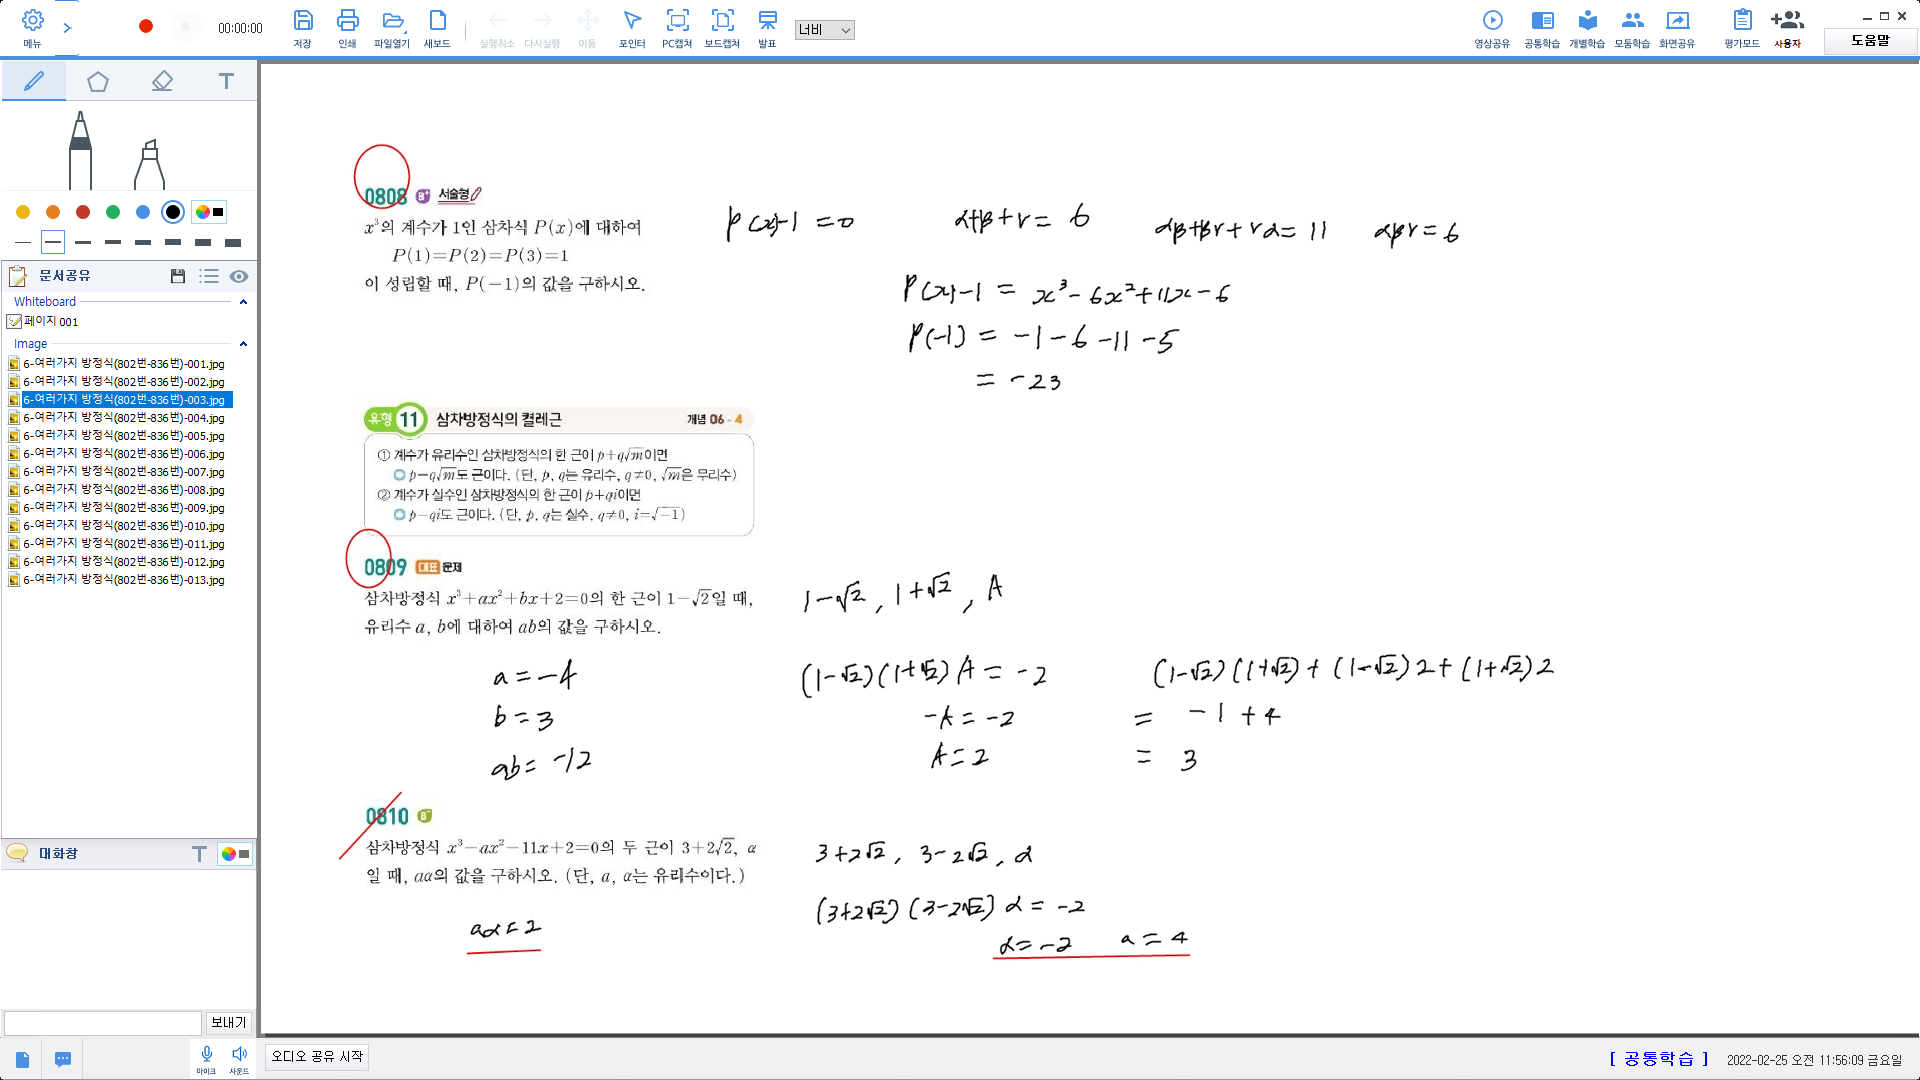 메뉴
00:00:00
저장
인쇄
파일열기
새보드
실행취소
다시실행
이동
포인터
PC캡쳐
보드캡쳐
발표
너비
영상공유
공통학습
개별학습
모둠학습
화면공유
평가모드
사용자
도움말
문서공유
Whiteboard
페이지 001
Image
6-여러가지 방정식(802번-836번)-001.jpg
6-여러가지 방정식(802번-836번)-002.jpg
6-여러가지 방정식(802번-836번)-003.jpg
6-여러가지 방정식(802번-836번)-004.jpg
6-여러가지 방정식(802번-836번)-005.jpg
6-여러가지 방정식(802번-836번)-006.jpg
6-여러가지 방정식(802번-836번)-007.jpg
6-여러가지 방정식(802번-836번)-008.jpg
6-여러가지 방정식(802번-836번)-009.jpg
6-여러가지 방정식(802번-836번)-010.jpg
6-여러가지 방정식(802번-836번)-011.jpg
6-여러가지 방정식(802번-836번)-012.jpg
6-여러가지 방정식(802번-836번)-013.jpg
대화창
보내기
마이크
사운드
오디오 공유 시작
[ 공통학습 ]
2022-02-25 오전 11:56:09 금요일
0808 B+ 서술형
x³의 계수가 1인 삼차식 P(x)에 대하여
P(1)=P(2)=P(3)=1
이 성립할 때, P(-1)의 값을 구하시오.
P(x)-1 = 0
α+β+γ = 6
αβ+βγ+γα = 11
αβγ = 6
P(x)-1 = x³-6x²+11x-6
P(-1) = -1-6-11-5
= -23
유형 11 삼차방정식의 켤레근 개념 06-4
① 계수가 유리수인 삼차방정식의 한 근이 p+q√m이면
p-q√m도 근이다. (단, p, q는 유리수, q≠0, √m은 무리수)
② 계수가 실수인 삼차방정식의 한 근이 p+qi이면
p-qi도 근이다. (단, p, q는 실수, q≠0, i=√-1)
0809 대표 문제
삼차방정식 x³+ax²+bx+2=0의 한 근이 1-√2일 때,
유리수 a, b에 대하여 ab의 값을 구하시오.
a = -4
b = 3
ab = -12
1-√2, 1+√2, A
(1-√2)(1+√2)A = -2
-A = -2
A = 2
(1-√2)(1+√2)+(1-√2)2+(1+√2)2
= -1+4
= 3
0810 B-
삼차방정식 x³-ax²-11x+2=0의 두 근이 3+2√2, α
일 때, aα의 값을 구하시오. (단, a, α는 유리수이다.)
aα = 2
3+2√2, 3-2√2, α
(3+2√2)(3-2√2)α = -2
α = -2 a = 4